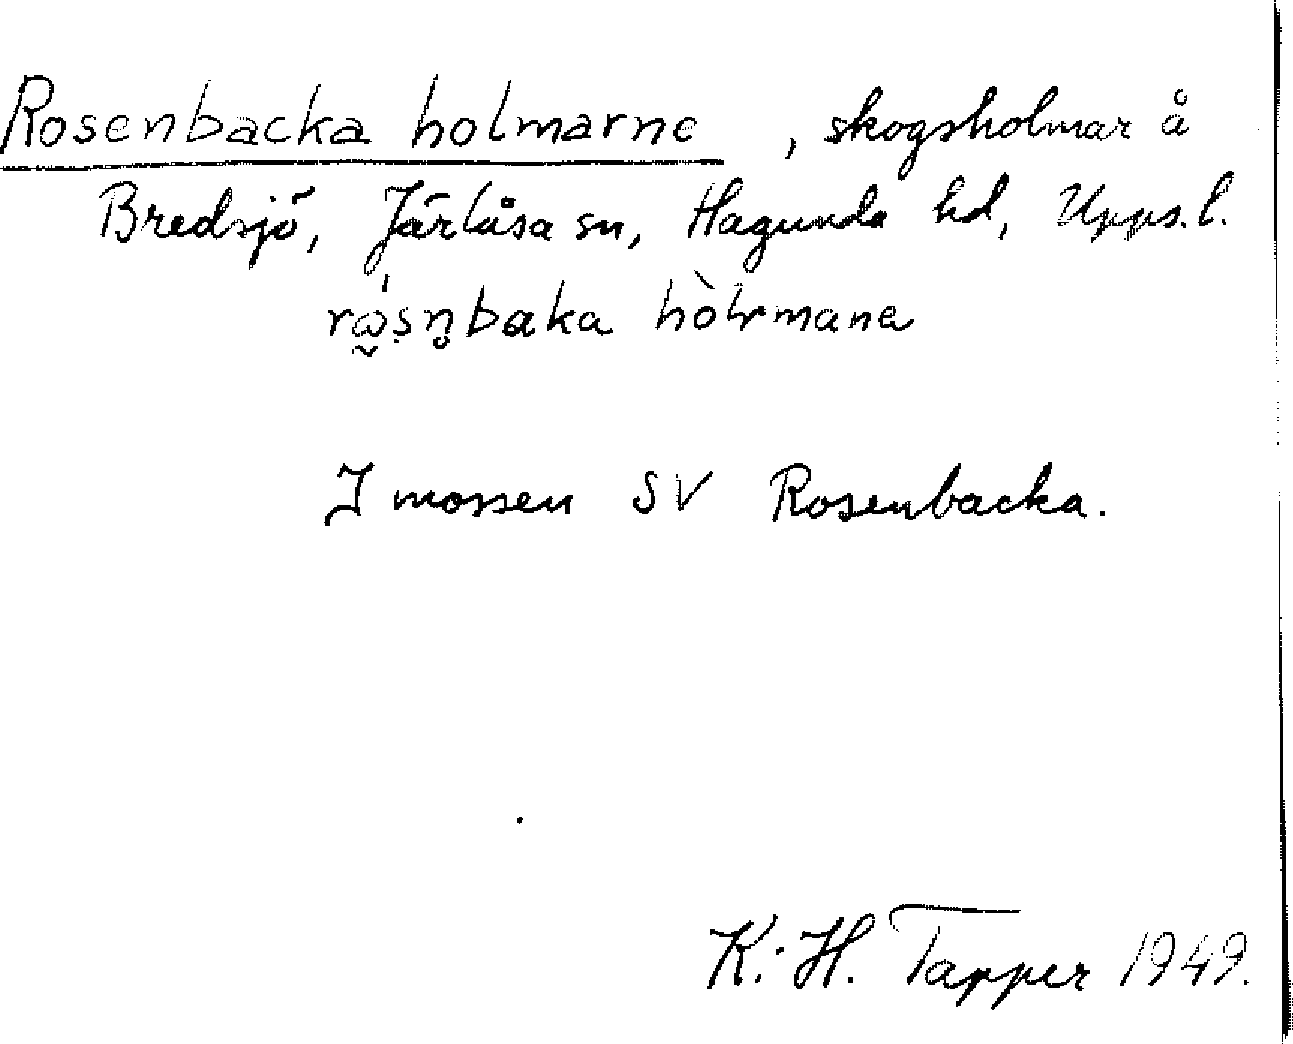 Rosenbacka holmarne, skogsholmar å
Bredsjö, Järlåsa sn, Hagunda hd, Upps.l.
hòlrmana
I mossen SV Rosenbacka.
K.H. Tapper 1949.